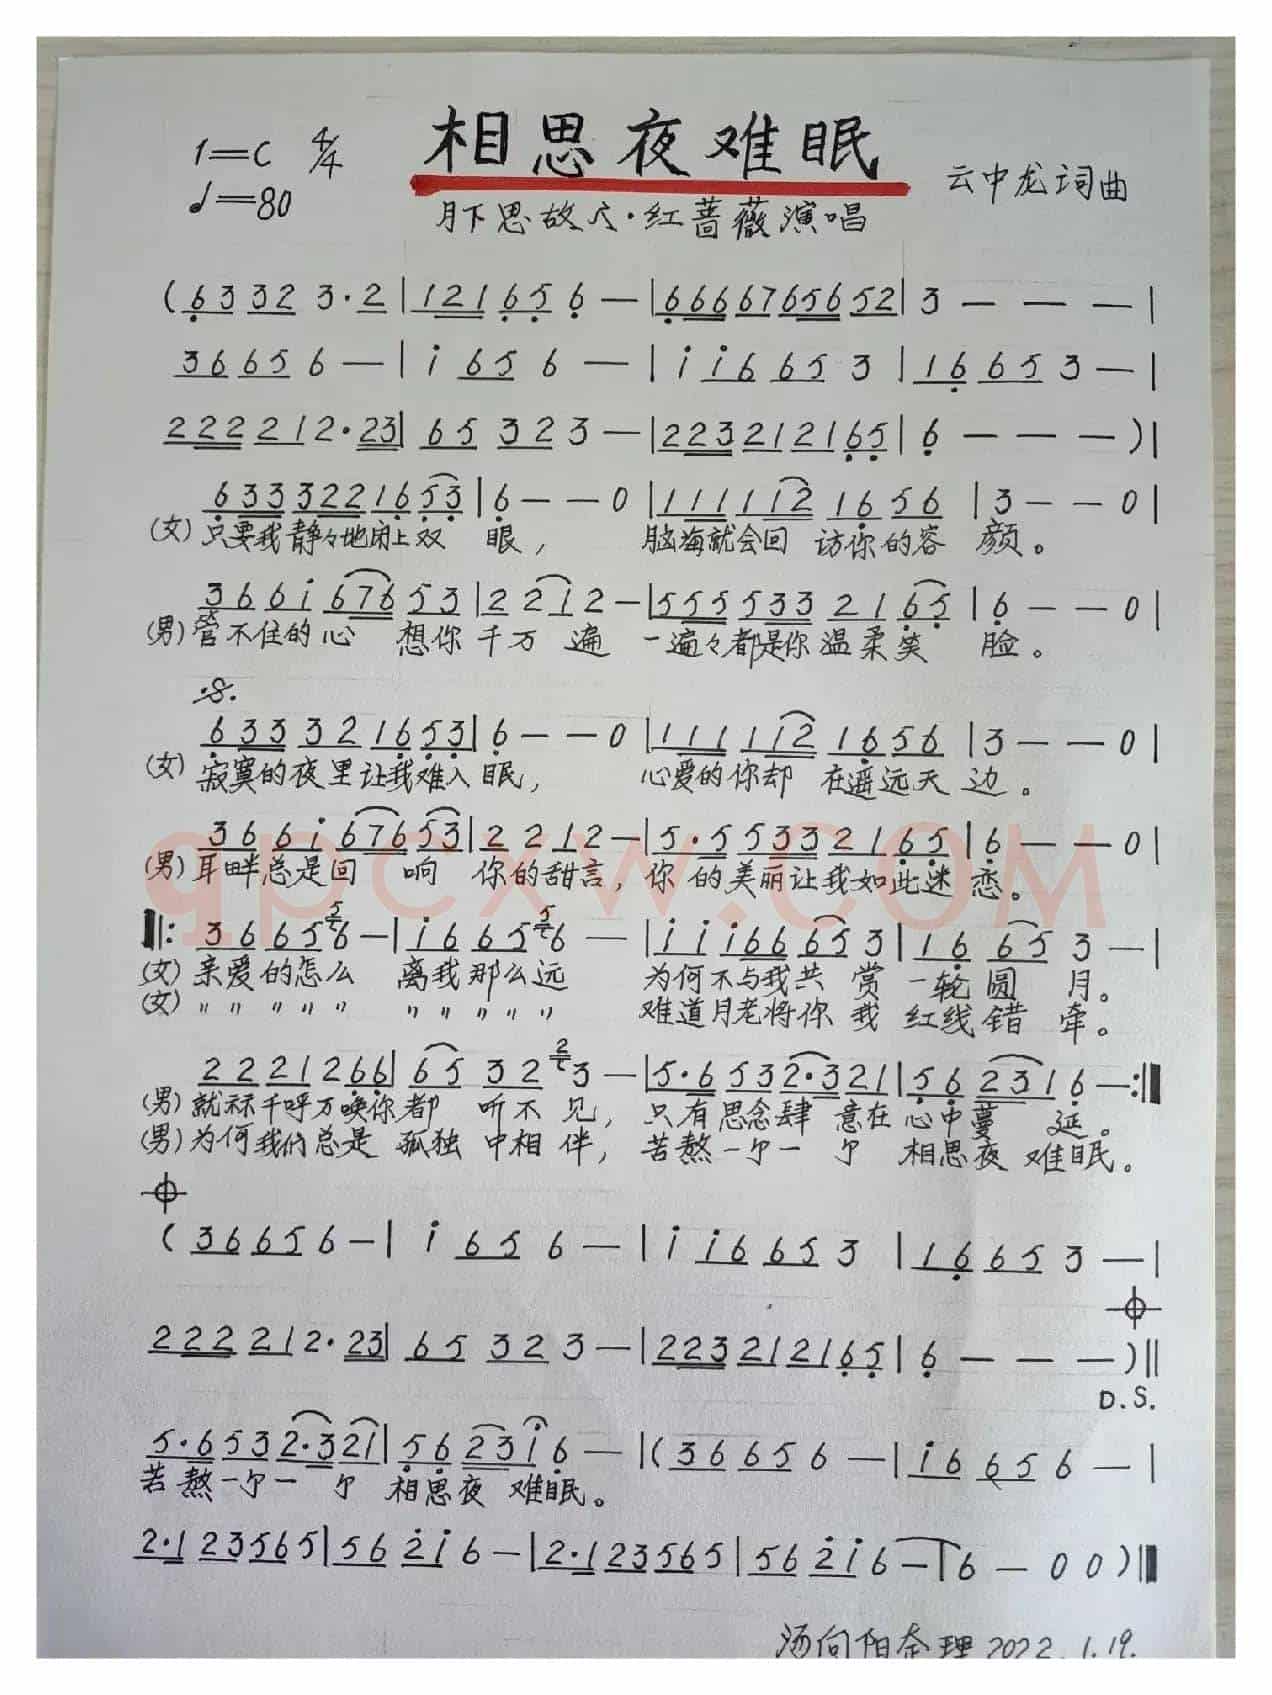 相思夜难眠
1=C 4/4
♩=80
云中龙词曲
月下思故人·红蔷薇演唱
(63 32 3·2|121 65 6—|6666765652|3———|
36656—|i 65 6—|i i6 65 3|16 65 3—|
222 212·23|65 32 3—|223212165|6———)|
6333221653|6——0|11111i2 16 56|3——0|
(女)只要我静々地闭上双眼，脑海就会回访你的容颜。
366i67653|2 2i2—|5555332165|6——0|
(男)管不住的心想你千万遍一遍々都是你温柔笑脸。
𝄋
633 32 16 53|6——0|111 1i2 16 56|3——0|
(女)寂寞的夜里让我难入眠，心爱的你却在遥远天边。
366i67653|2 2 12—|5·55332165|6——0|
(男)耳畔总是回响你的甜言，你的美丽让我如此迷恋。
‖:366556—|i66556—|i i i66653|16 65 3—|
(女)亲爱的怎么离我那么远为何不与我共赏一轮圆月。
(女)〃〃〃〃〃〃〃〃〃〃难道月老将你我红线错牵。
2221266|65 32 23—|5·6532·321|562316—:‖
(男)就祘千呼万唤你都听不见，只有思念肆意在心中蔓延。
(男)为何我们总是孤独中相伴，苦熬一分一分相思夜难眠。
𝄌
(36656—|i 65 6—|i i6 65 3|16 65 3—|
𝄌
222 212·23|65 32 3—|223212165|6———)‖
D.S.
5·6532·321|5623i6—|(36656—|i6656—|
苦熬一分一分相思夜难眠。
2·123565|562i6—|2·123565|562i6—|6—00)‖
汤向阳奈理2022.1.19.
qpcxw.COM